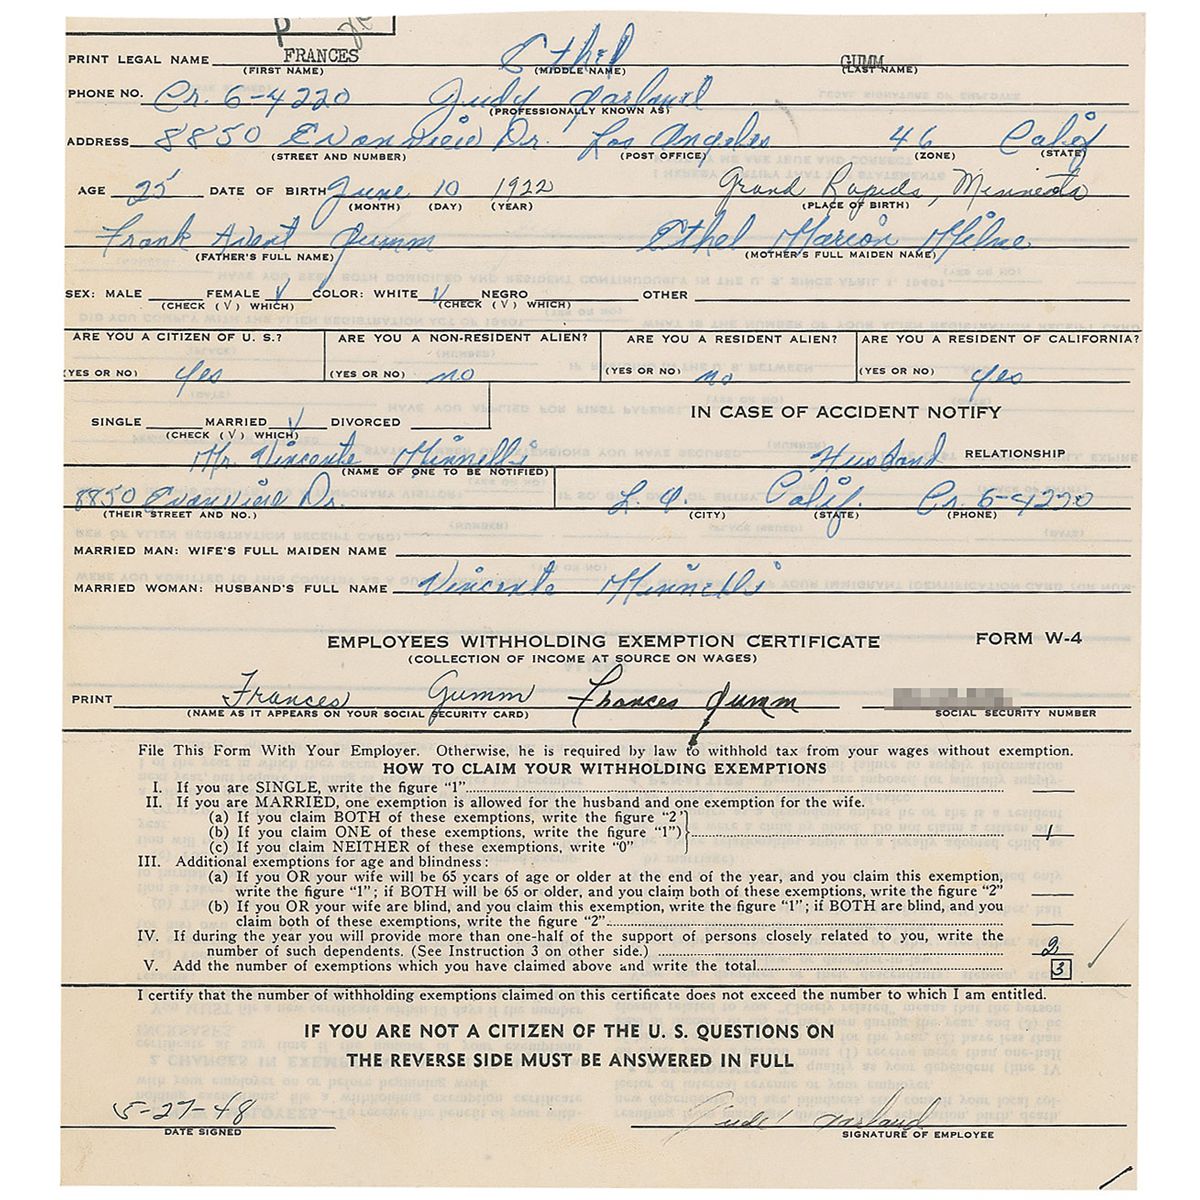 P
PRINT LEGAL NAME FRANCES Ethel GUMM
(FIRST NAME) (MIDDLE NAME) (LAST NAME)
PHONE NO. Cr. 6-4220 Judy Garland
(PROFESSIONALLY KNOWN AS)
ADDRESS 8850 Evanview Dr. Los Angeles 46 Calif
(STREET AND NUMBER) (POST OFFICE) (ZONE) (STATE)
AGE 25 DATE OF BIRTH June 10 1922 Grand Rapids, Minnesota
(MONTH) (DAY) (YEAR) (PLACE OF BIRTH)
Frank Avent Gumm Ethel Marion Milne
(FATHER'S FULL NAME) (MOTHER'S FULL MAIDEN NAME)
SEX: MALE FEMALE √ COLOR: WHITE √ NEGRO OTHER
(CHECK (√) WHICH) (CHECK (√) WHICH)
ARE YOU A CITIZEN OF U. S.? ARE YOU A NON-RESIDENT ALIEN? ARE YOU A RESIDENT ALIEN? ARE YOU A RESIDENT OF CALIFORNIA?
(YES OR NO) yes (YES OR NO) no (YES OR NO) no (YES OR NO) yes
SINGLE MARRIED √ DIVORCED IN CASE OF ACCIDENT NOTIFY
(CHECK (√) WHICH)
Mr. Vincente Minnelli Husband RELATIONSHIP
(NAME OF ONE TO BE NOTIFIED)
8850 Evanview Dr. L. A. Calif. Cr. 6-4220
(THEIR STREET AND NO.) (CITY) (STATE) (PHONE)
MARRIED MAN: WIFE'S FULL MAIDEN NAME
MARRIED WOMAN: HUSBAND'S FULL NAME Vincente Minnelli
EMPLOYEES WITHHOLDING EXEMPTION CERTIFICATE FORM W-4
(COLLECTION OF INCOME AT SOURCE ON WAGES)
PRINT Frances Gumm Frances Gumm
(NAME AS IT APPEARS ON YOUR SOCIAL SECURITY CARD) SOCIAL SECURITY NUMBER
File This Form With Your Employer. Otherwise, he is required by law to withhold tax from your wages without exemption.
HOW TO CLAIM YOUR WITHHOLDING EXEMPTIONS
I. If you are SINGLE, write the figure "1"
II. If you are MARRIED, one exemption is allowed for the husband and one exemption for the wife.
(a) If you claim BOTH of these exemptions, write the figure "2"
(b) If you claim ONE of these exemptions, write the figure "1") 1
(c) If you claim NEITHER of these exemptions, write "0"
III. Additional exemptions for age and blindness:
(a) If you OR your wife will be 65 years of age or older at the end of the year, and you claim this exemption,
write the figure "1"; if BOTH will be 65 or older, and you claim both of these exemptions, write the figure "2"
(b) If you OR your wife are blind, and you claim this exemption, write the figure "1"; if BOTH are blind, and you
claim both of these exemptions, write the figure "2"
IV. If during the year you will provide more than one-half of the support of persons closely related to you, write the
number of such dependents. (See Instruction 3 on other side.) 2
V. Add the number of exemptions which you have claimed above and write the total 3
I certify that the number of withholding exemptions claimed on this certificate does not exceed the number to which I am entitled.
IF YOU ARE NOT A CITIZEN OF THE U. S. QUESTIONS ON
THE REVERSE SIDE MUST BE ANSWERED IN FULL
5-27-48 Judy Garland
DATE SIGNED SIGNATURE OF EMPLOYEE